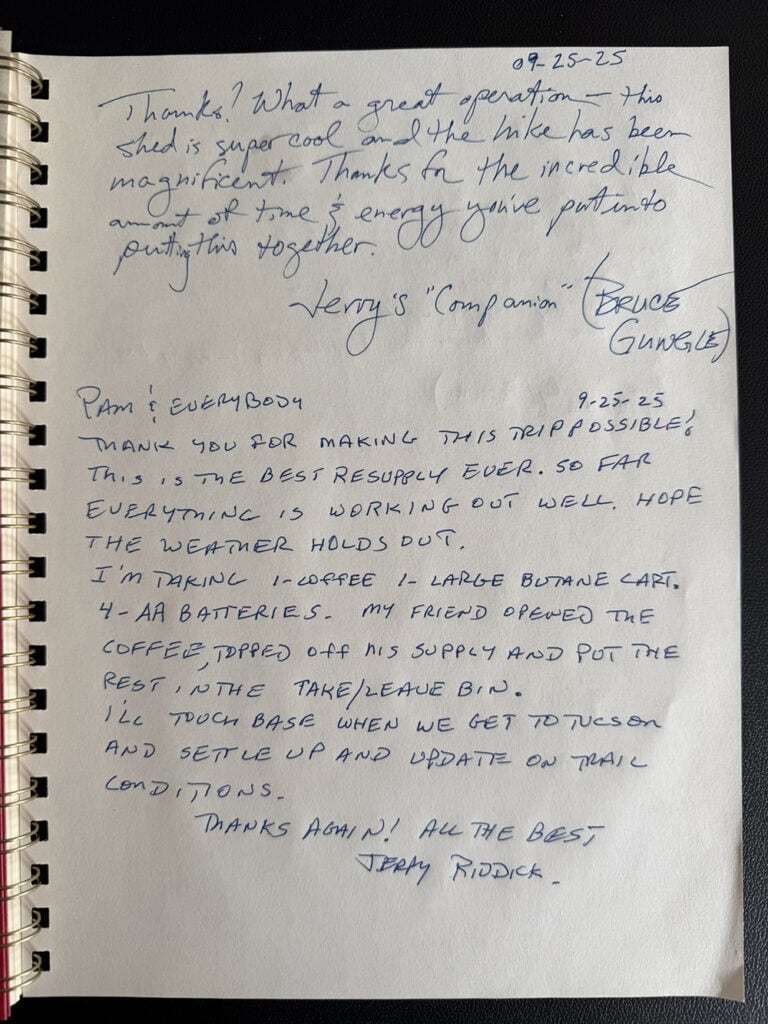 09-25-25
Thanks! What a great operation — this
shed is super cool and the hike has been
magnificent. Thanks for the incredible
amount of time & energy you've put into
putting this together.
Jerry's "Companion" (BRUCE
GUNGLE)
PAM & EVERYBODY 9-25-25
THANK YOU FOR MAKING THIS TRIP POSSIBLE!
THIS IS THE BEST RESUPPLY EVER. SO FAR
EVERYTHING IS WORKING OUT WELL. HOPE
THE WEATHER HOLDS OUT.
I'M TAKING 1-COFFEE 1-LARGE BUTANE CART.
4-AA BATTERIES. MY FRIEND OPENED THE
COFFEE, TOPPED OFF HIS SUPPLY AND PUT THE
REST IN THE TAKE/LEAVE BIN.
I'LL TOUCH BASE WHEN WE GET TO TUCSON
AND SETTLE UP AND UPDATE ON TRAIL
CONDITIONS.
THANKS AGAIN! ALL THE BEST
JERRY RIDDICK.